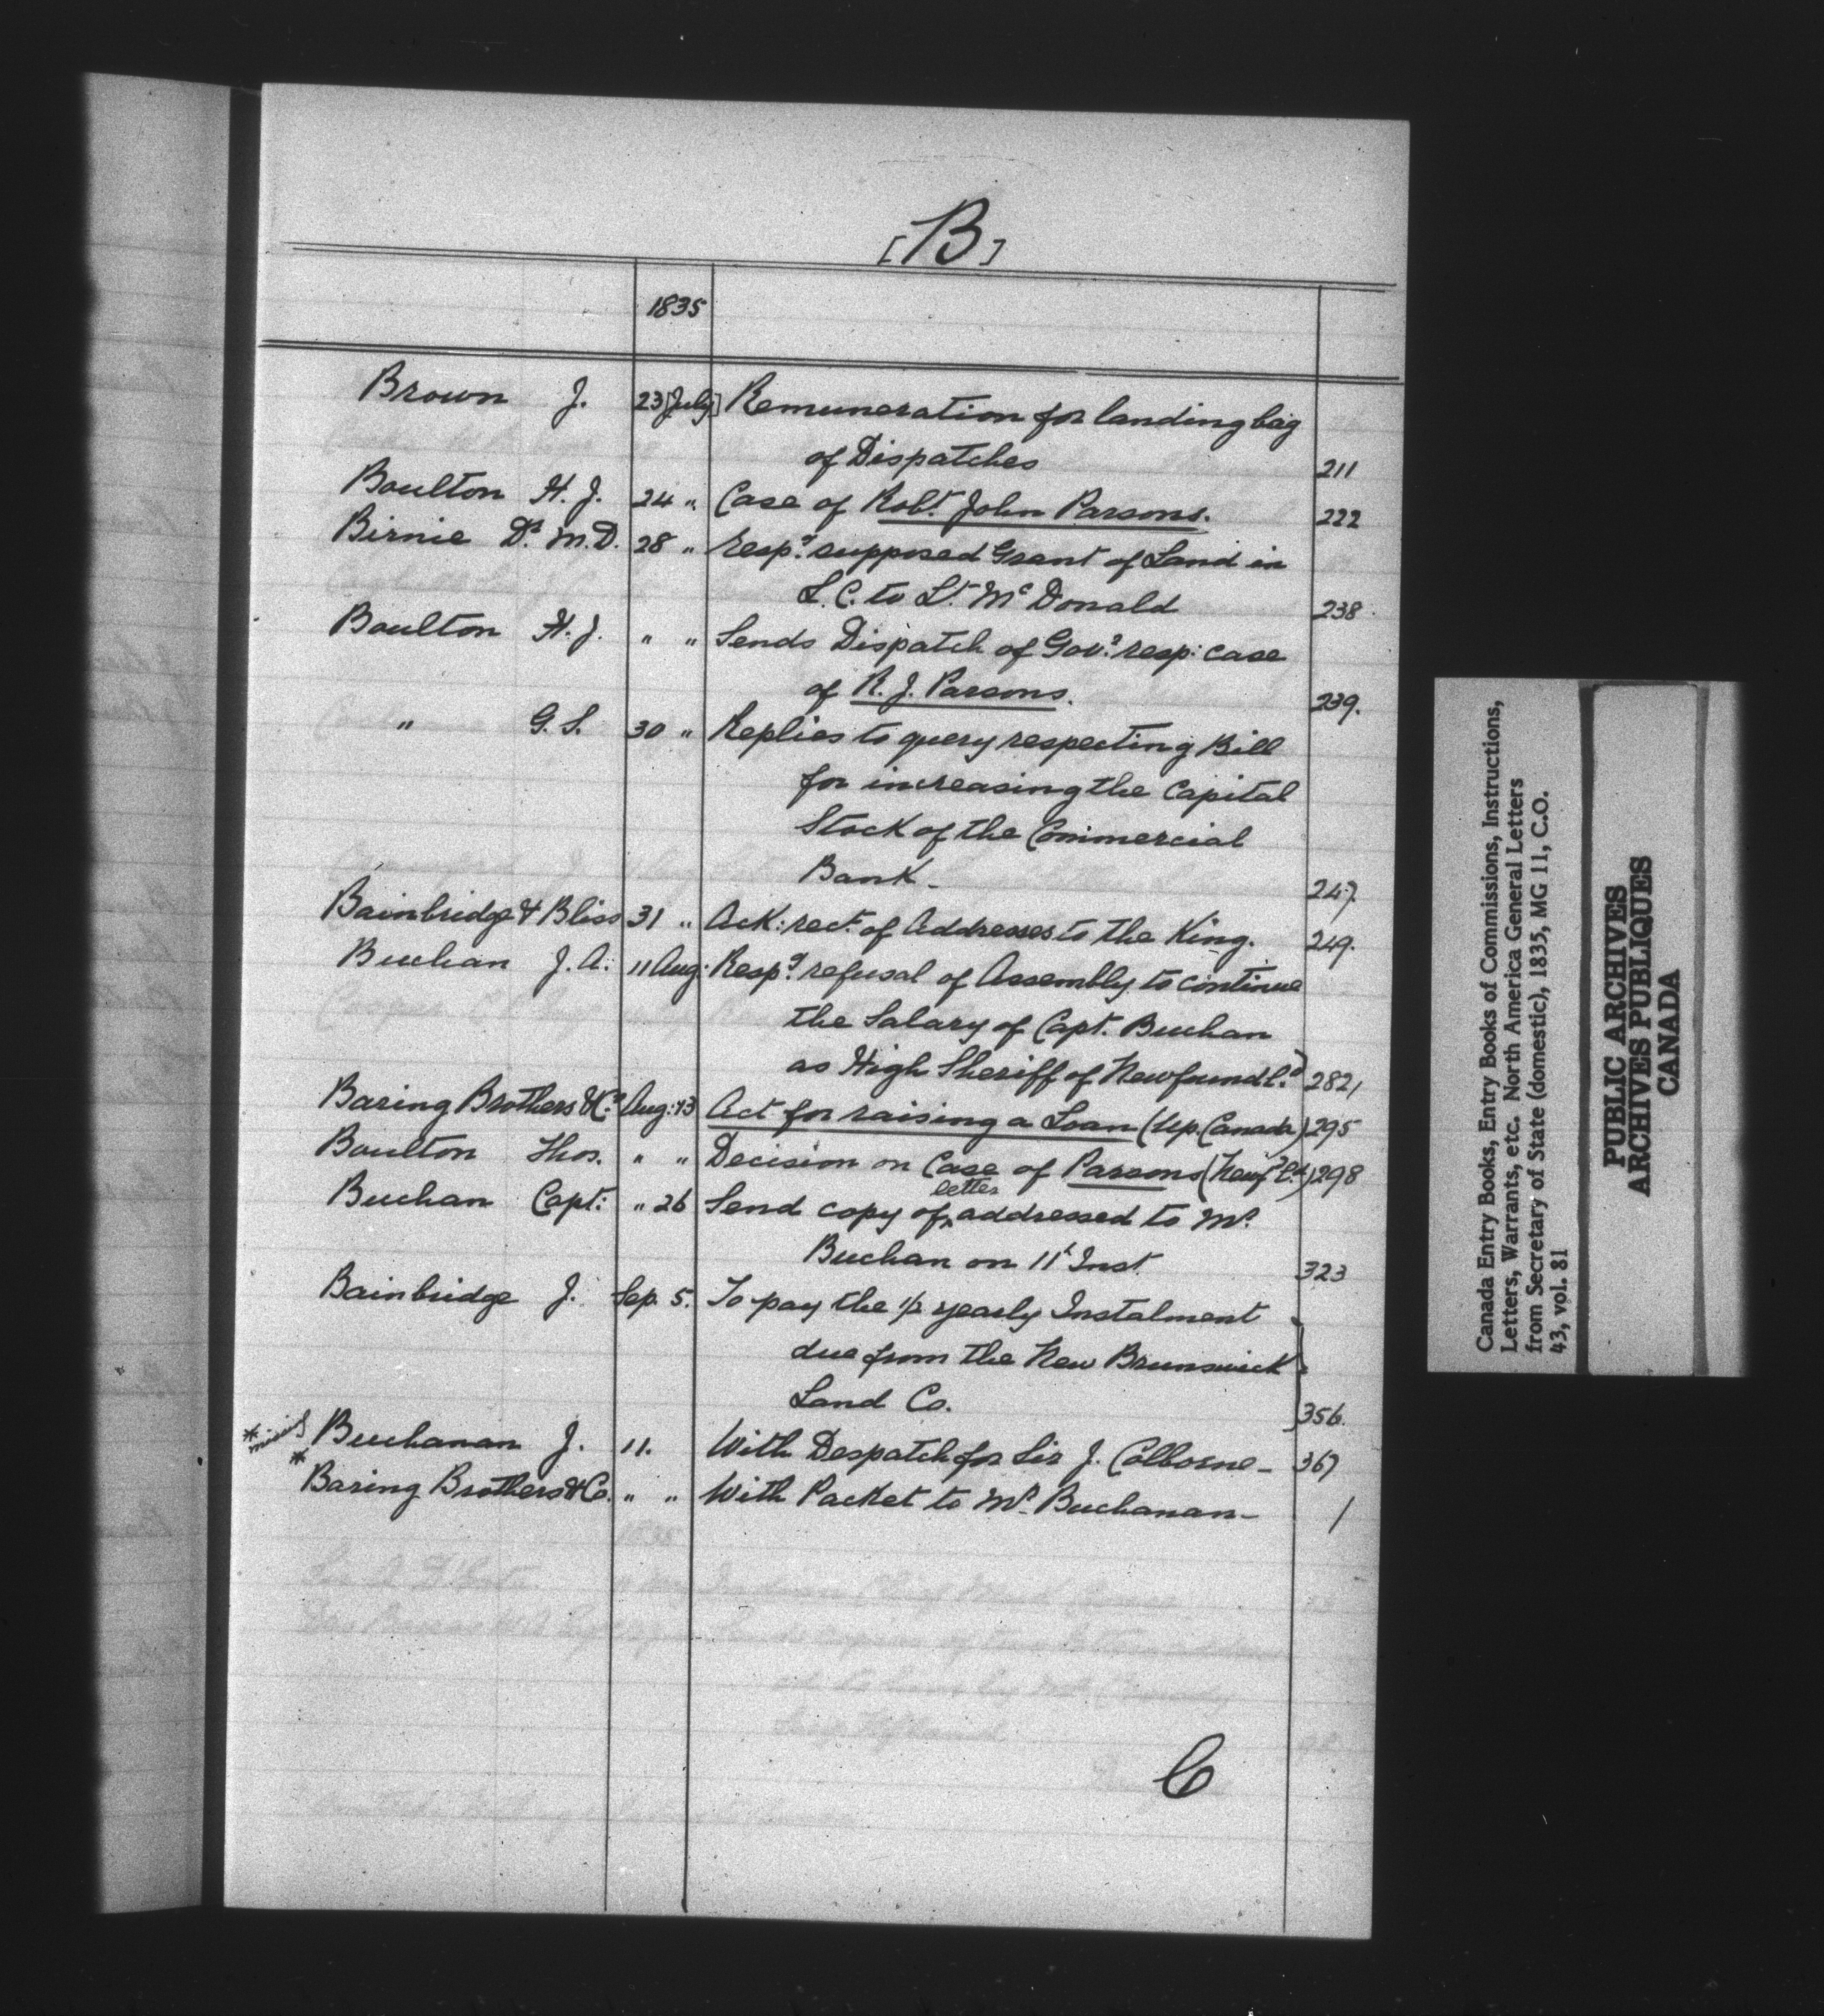 [B]
1835
Brown J. 23 [July] Remuneration for landing bag
of Dispatches 211
Boulton H. J. 24 " Case of Robt. John Parsons. 222
Birnie Dr. M.D. 28 " Respg. supposed Grant of Land in
L.C. to Lt. McDonald 238
Boulton H. J. " " Sends Dispatch of Govr. resp: case
of R. J. Parsons. 239.
" G. S. 30 " Replies to query respecting Bill
for increasing the Capital
Stock of the Commercial
Bank - 247.
Bainbridge & Bliss 31 " Ack: rect. of Addresses to the King. 249.
Buchan J. A. 11 Aug: Respg. refusal of Assembly to continue
the Salary of Capt. Buchan
as High Sheriff of Newfoundld. 282
Baring Brothers & Co. Aug: 13 Act for raising a Loan (Up. Canada) 295
Boulton Thos. " " Decision on Case of Parsons (Newfld.) 298
Buchan Capt: " 26 Send copy of letter addressed to Mr.
Buchan on 11t Inst. 323
Bainbridge J. Sep. 5. To pay the 1/2 yearly Instalment
due from the New Brunswick
Land Co. 356.
* Buchanan J. 11. With Despatch for Sir J. Colborne - 367
* Baring Brothers & Co. " " With Packet to Mr. Buchanan - /
C
Canada Entry Books, Entry Books of Commissions, Instructions,
Letters, Warrants, etc. North America General Letters
from Secretary of State (domestic), 1835, MG 11, C.O.
43, vol. 81
PUBLIC ARCHIVES
ARCHIVES PUBLIQUES
CANADA